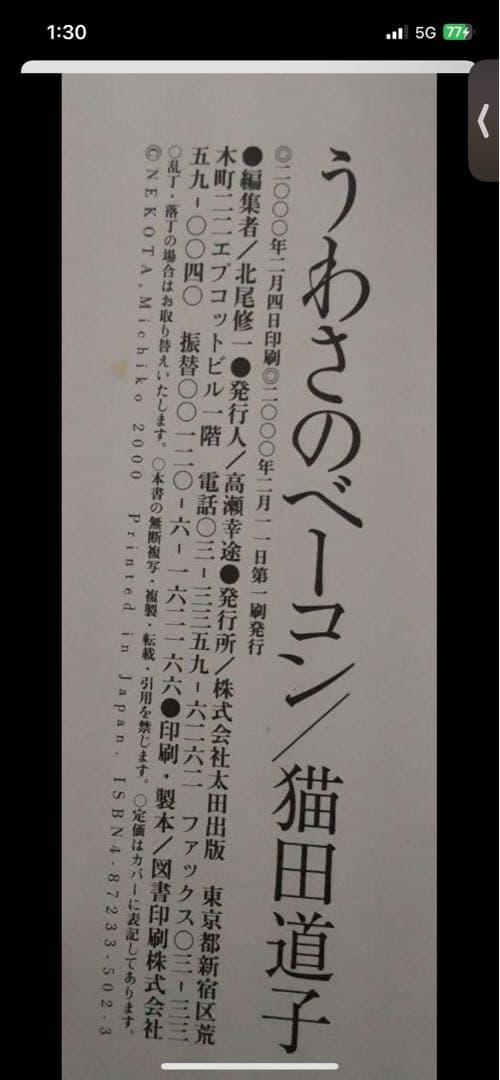 1:30
5G
77
うわさのベーコン／猫田道子
◎二〇〇〇年二月四日印刷◎二〇〇〇年二月一一日第一刷発行
●編集者／北尾修一●発行人／高瀬幸途●発行所／株式会社太田出版　東京都新宿区荒
木町二二エプコットビル一階　電話〇三-三三五九-六二六二　ファックス〇三-三三
五九-〇〇四〇　振替〇〇一二〇-六-一六二一六六●印刷・製本／図書印刷株式会社
〇乱丁・落丁の場合はお取り替えいたします。〇本書の無断複写・複製・転載・引用を禁じます。〇定価はカバーに表記してあります。
©NEKOTA, Michiko 2000 Printed in Japan. ISBN4-87233-502-3